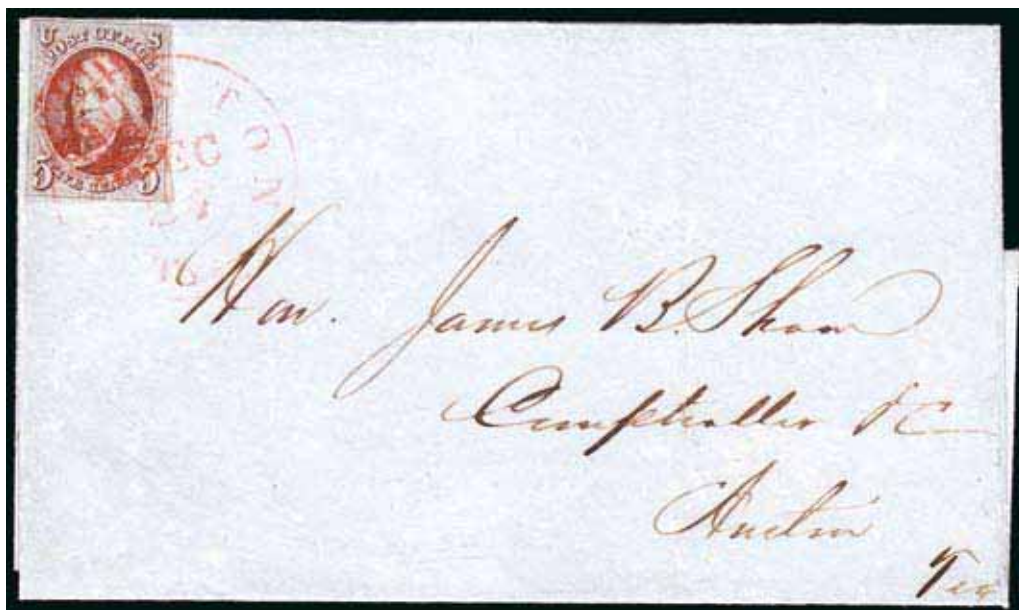 U S
POST OFFICE
5 FIVE CENTS 5
TON
DEC
Hon. James B. Shaw
Comptroller &C
Austin
Tex